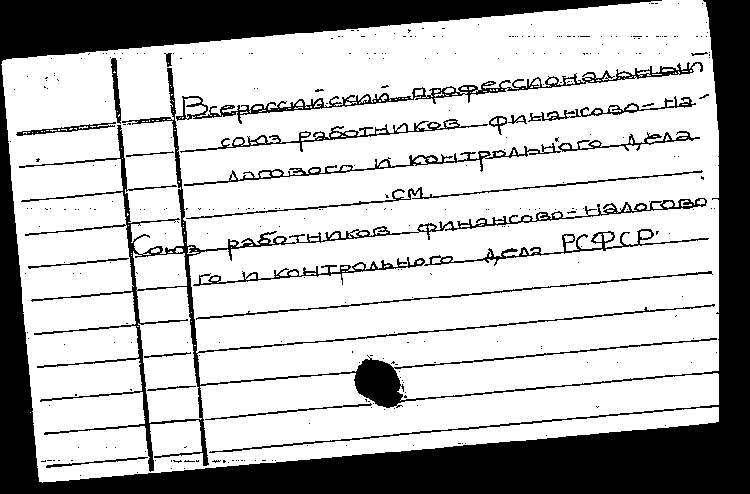 Всероссийский профессиональный
союз работников финансово-на-
логового и контрольного дела
см.
Союз работников финансово-налогово-
го и контрольного дела РСФСР